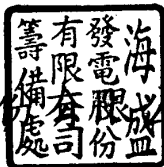 海盛
發電股份
有限公司
籌備處